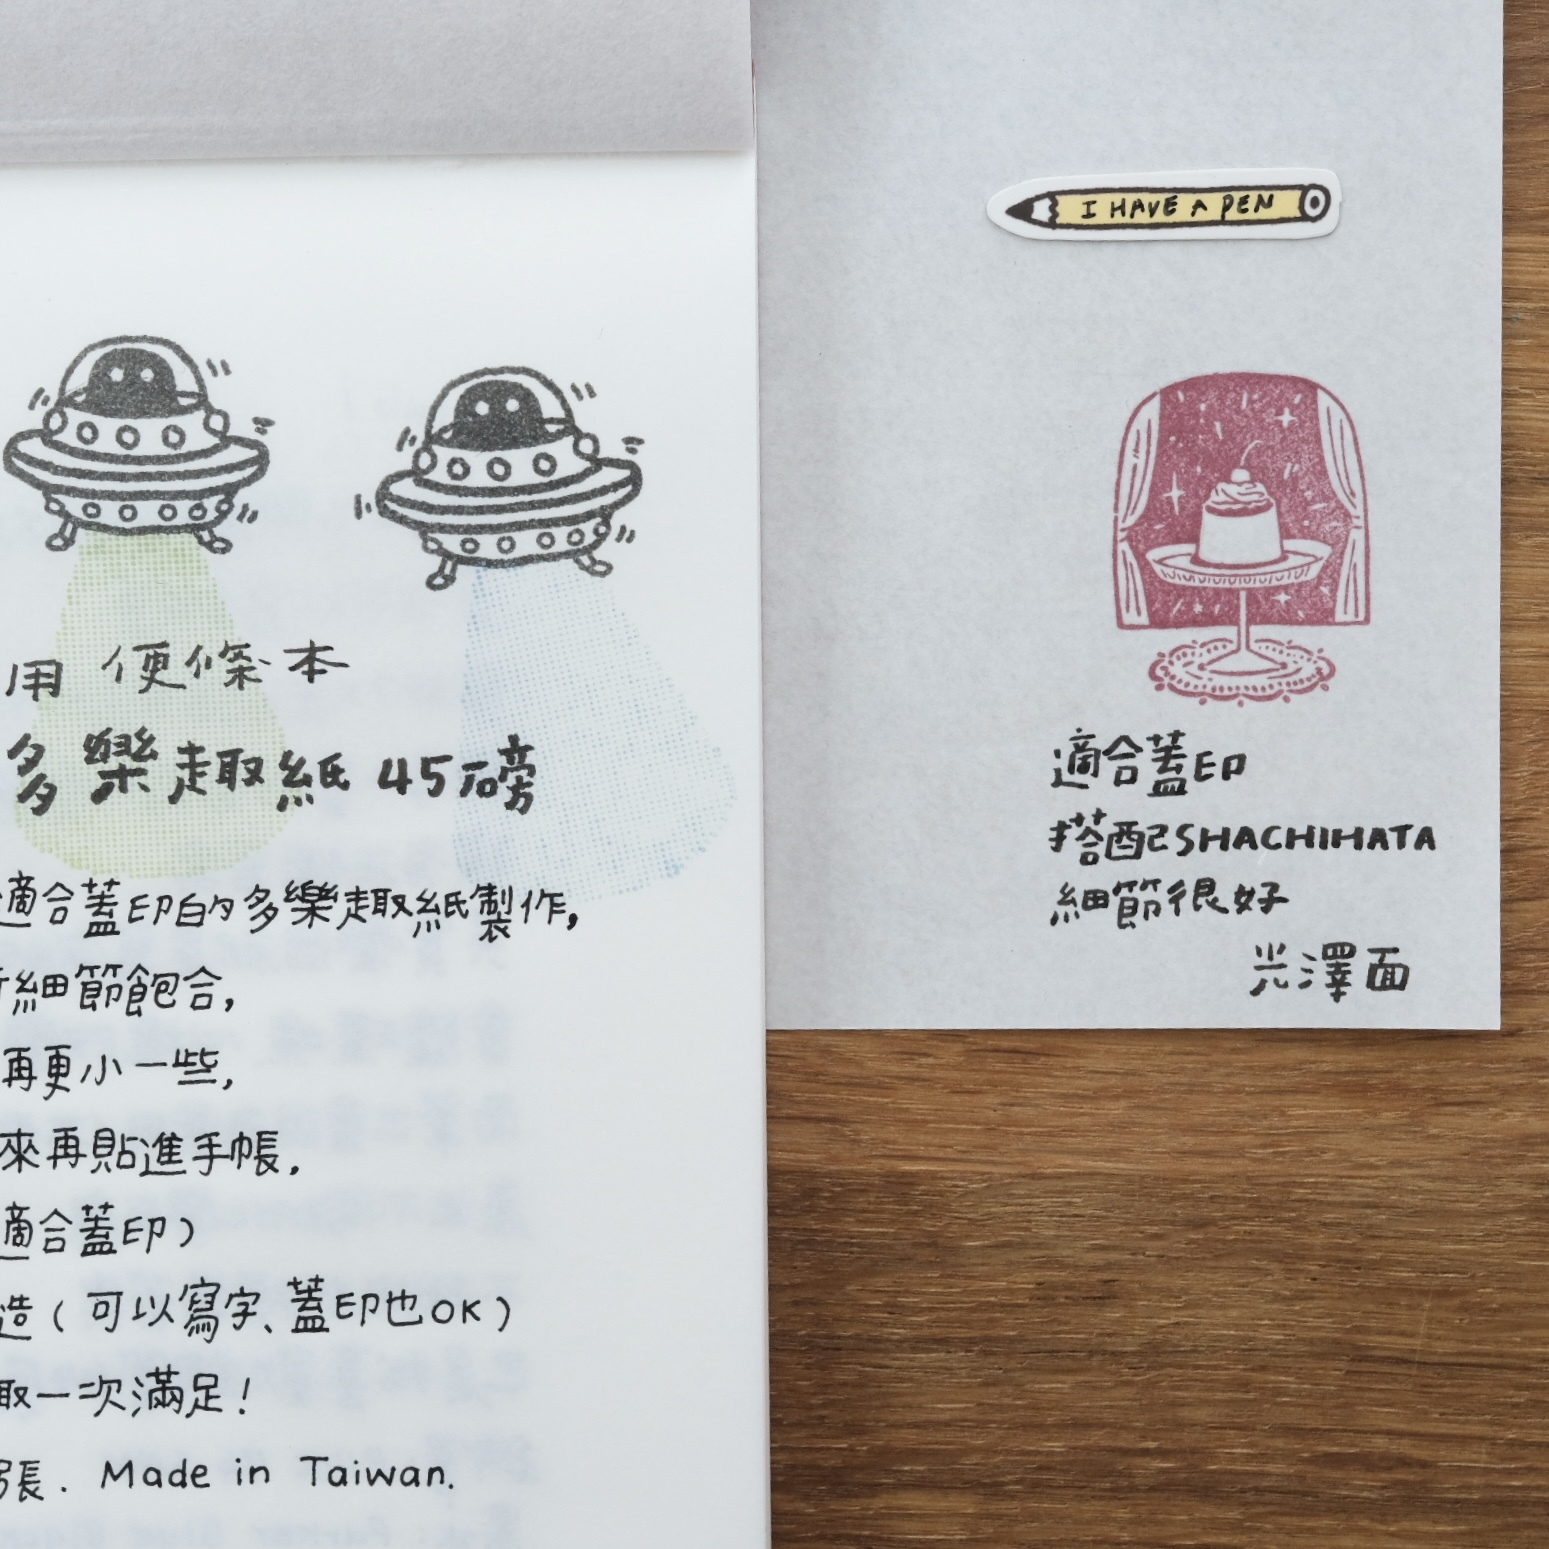 用 便條本
多樂趣紙 45磅
適合蓋印的多樂趣紙製作,
細節飽合,
再更小一些,
來再貼進手帳.
適合蓋印)
造(可以寫字、蓋印也OK)
取一次滿足!
張. Made in Taiwan.
I HAVE A PEN
適合蓋印
搭配SHACHIHATA
細節很好
光澤面